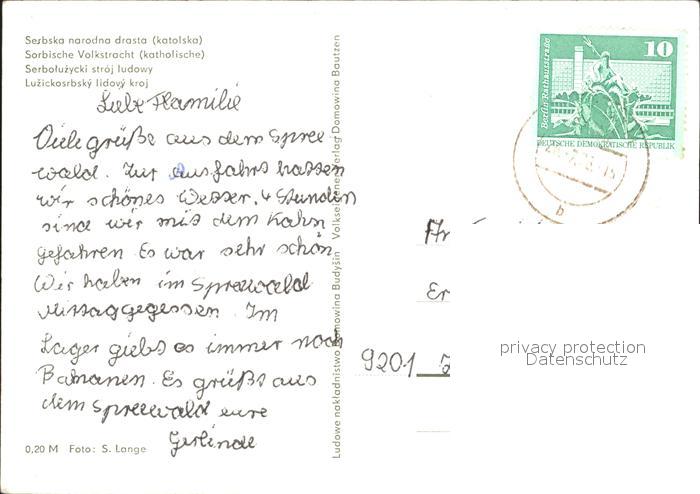 Serbska narodna drasta (katolska)
Sorbische Volkstracht (katholische)
Serbołužycki strój ludowy
Lužickosrbský lidový kroj
Liebe Flamilie
Viele grüße aus dem Spree
wald. Zur Ausfahrt hatten
wir schönes Wetter. 4 Stunden
sind wir mit dem Kahn
gefahren Es war sehr schön
Wir haben im Spreewald
Mittaggegessen. Im
Lager giebt es immer noch
Bananen. Es grüßt aus
dem Spreewald eure
Gerlinde
0,20 M Foto: S. Lange
Ludowe nakładnistwo Domowina Budyšin Volkseigener Verlag Domowina Bautzen
10
Berlin, Rathausstraße
DEUTSCHE DEMOKRATISCHE REPUBLIK
b
9201
privacy protection
Datenschutz